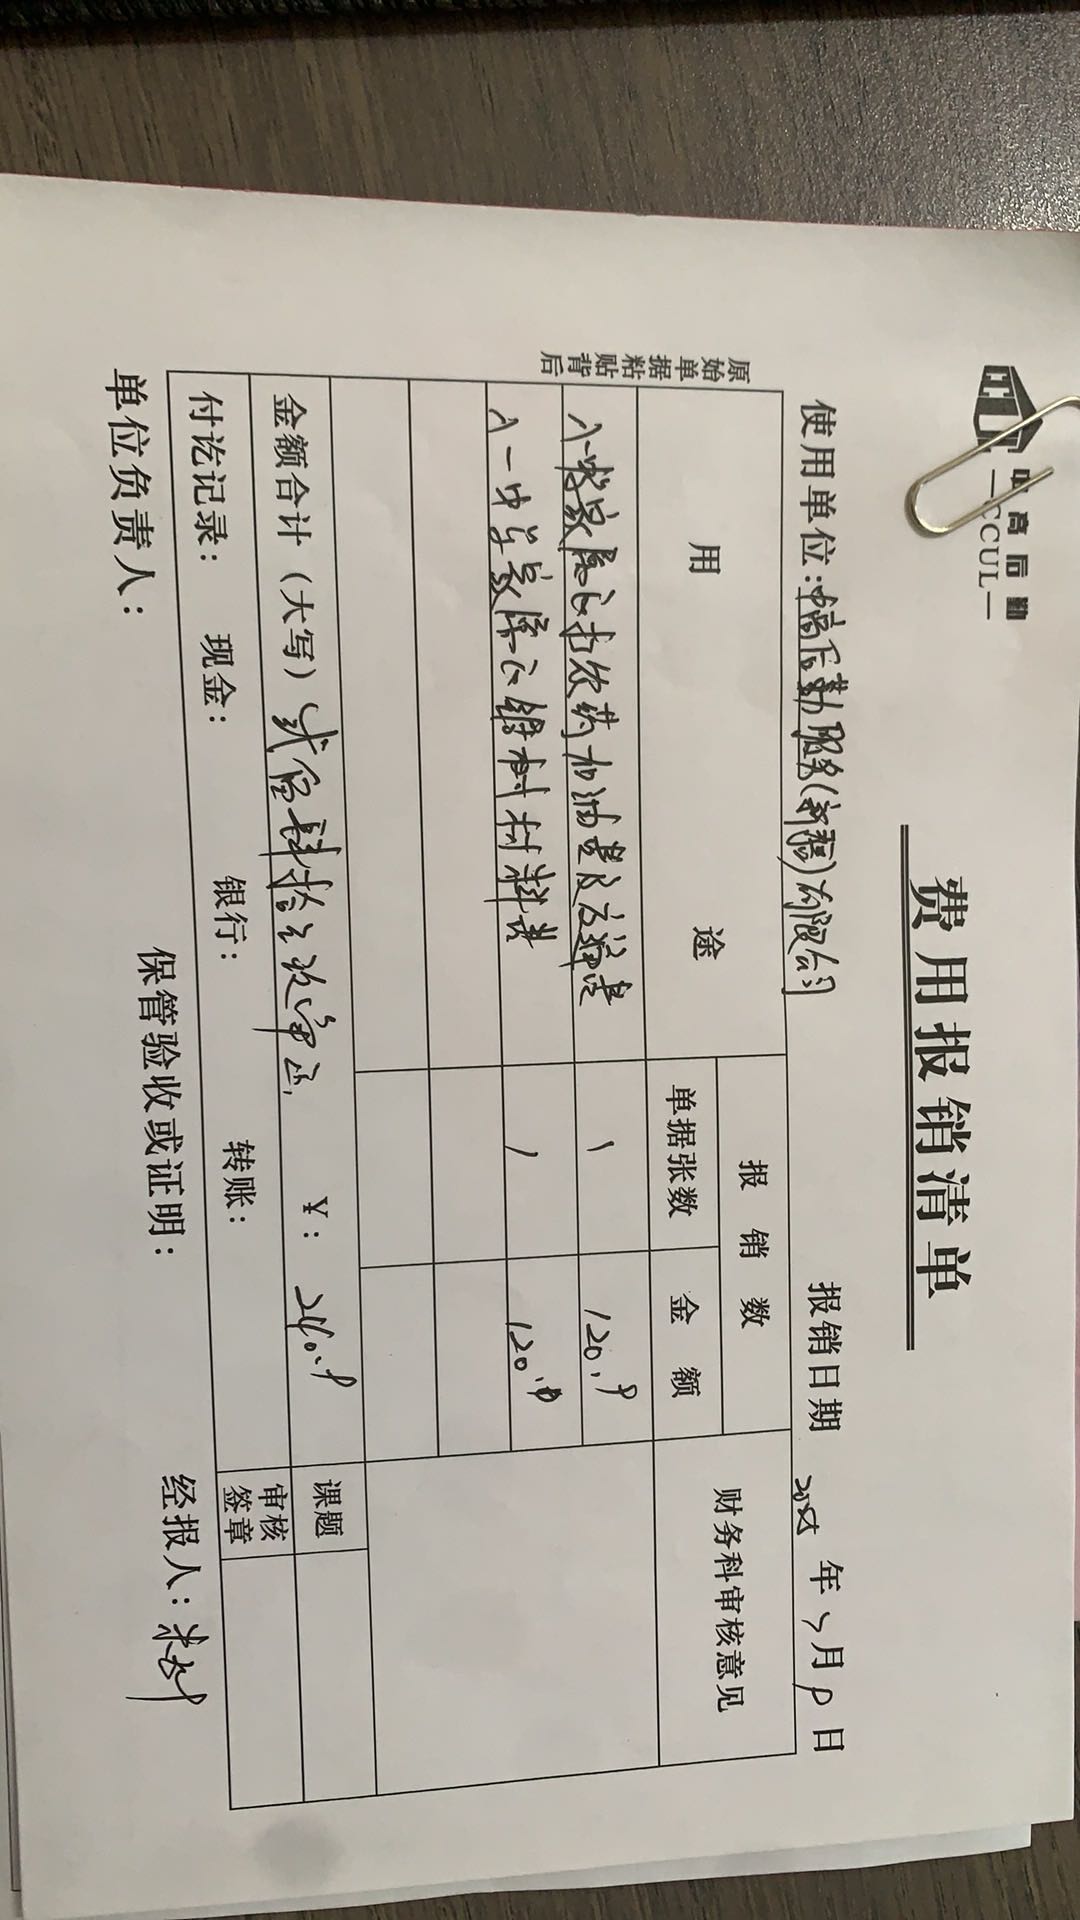 中高后勤
—CCUL—
费用报销清单
使用单位：中高后勤服务（新疆）有限公司 报销日期 年 月 日
原始单据粘贴背后
用途 报销数 财务科审核意见
单据张数 金额
打农药加油费及 1 120.
八一中学家属区锯树材料费 1 120.
金额合计（大写）贰佰肆拾元 ¥：240. 课题
付讫记录： 现金： 银行： 转账： 审核签章
单位负责人： 保管验收或证明： 经报人：